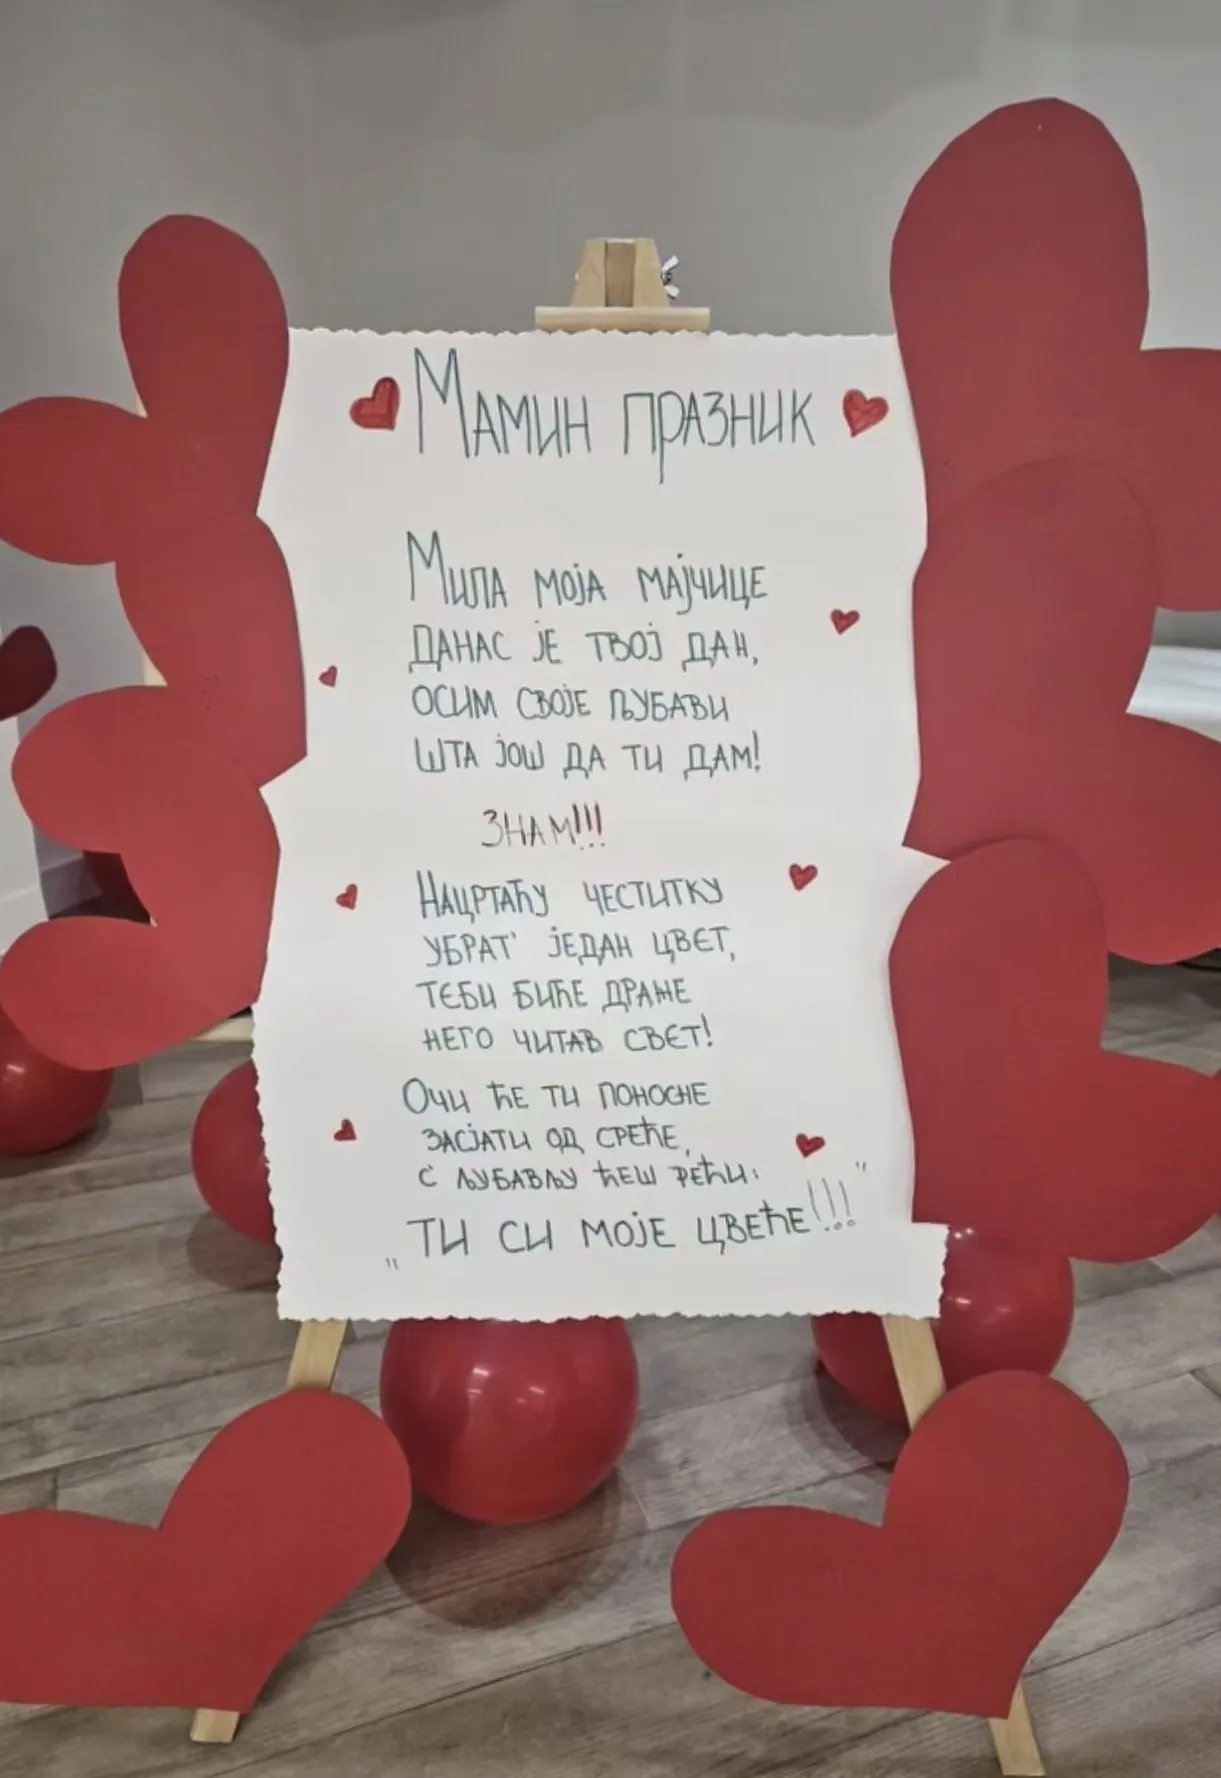 Мамин празник
Мила моја мајчице
данас је твој дан,
осим своје љубави
шта још да ти дам!
Знам!!!
Нацртаћу честитку
убрат' један цвет,
теби биће драже
него читав свет!
Очи ће ти поносне
засјати од среће,
с љубављу ћеш рећи:
„Ти си моје цвеће!!!"